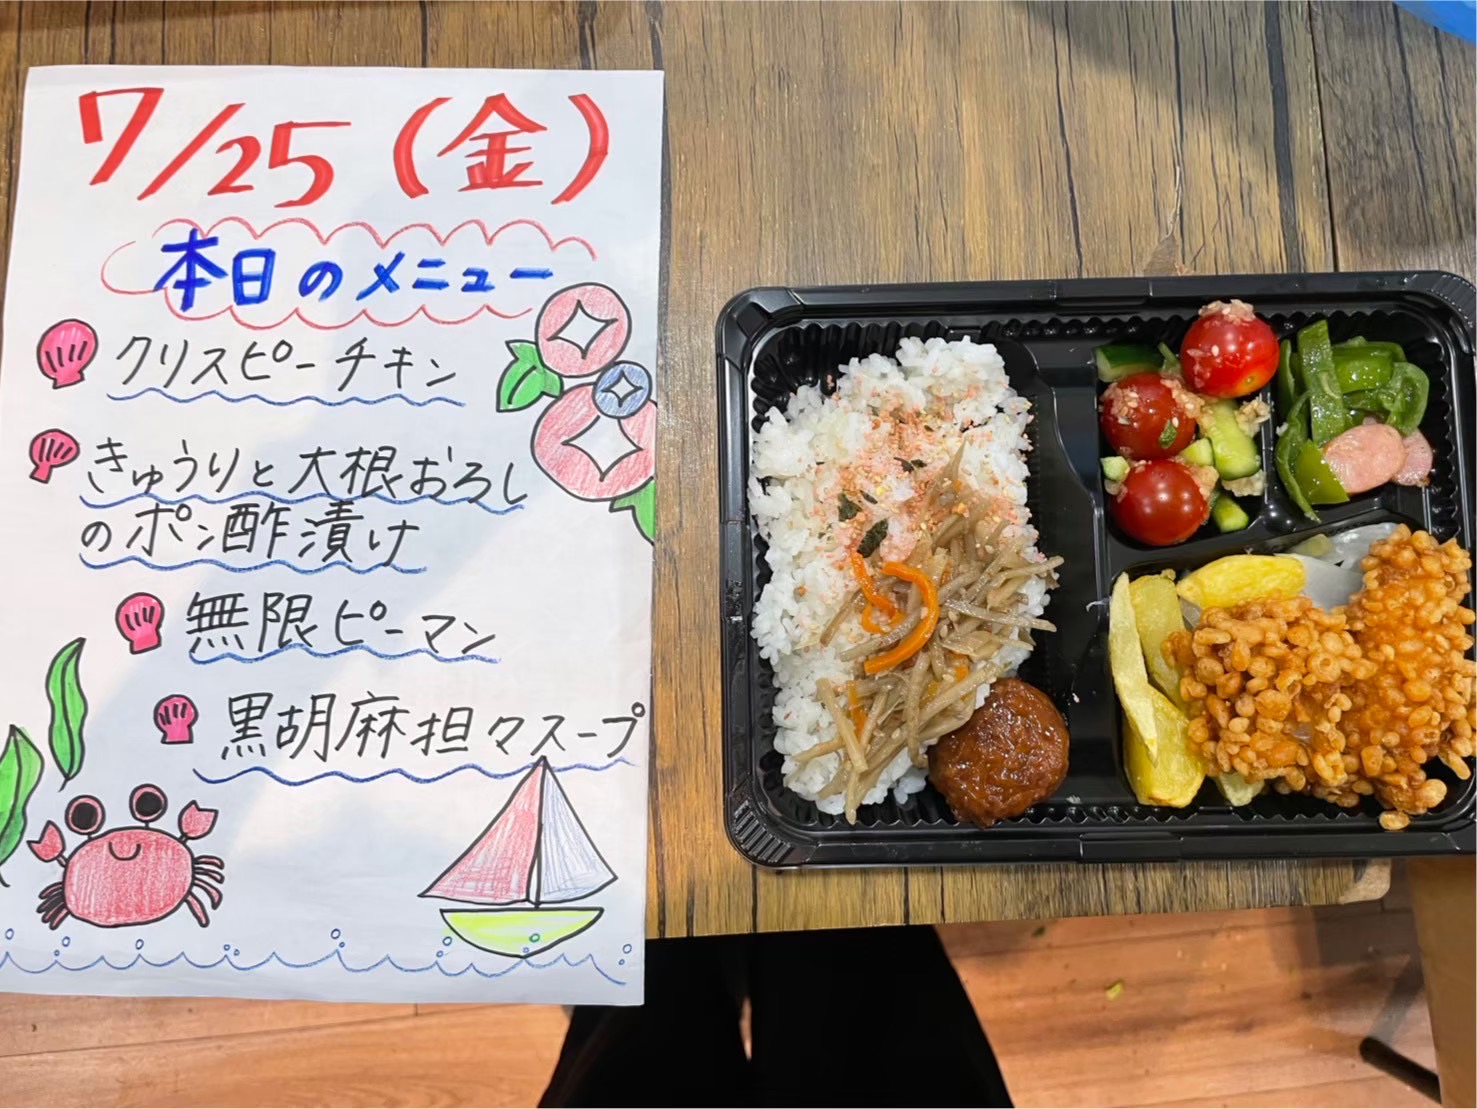 7/25(金)
本日のメニュー
クリスピーチキン
きゅうりと大根おろし
のポン酢漬け
無限ピーマン
黒胡麻担々スープ